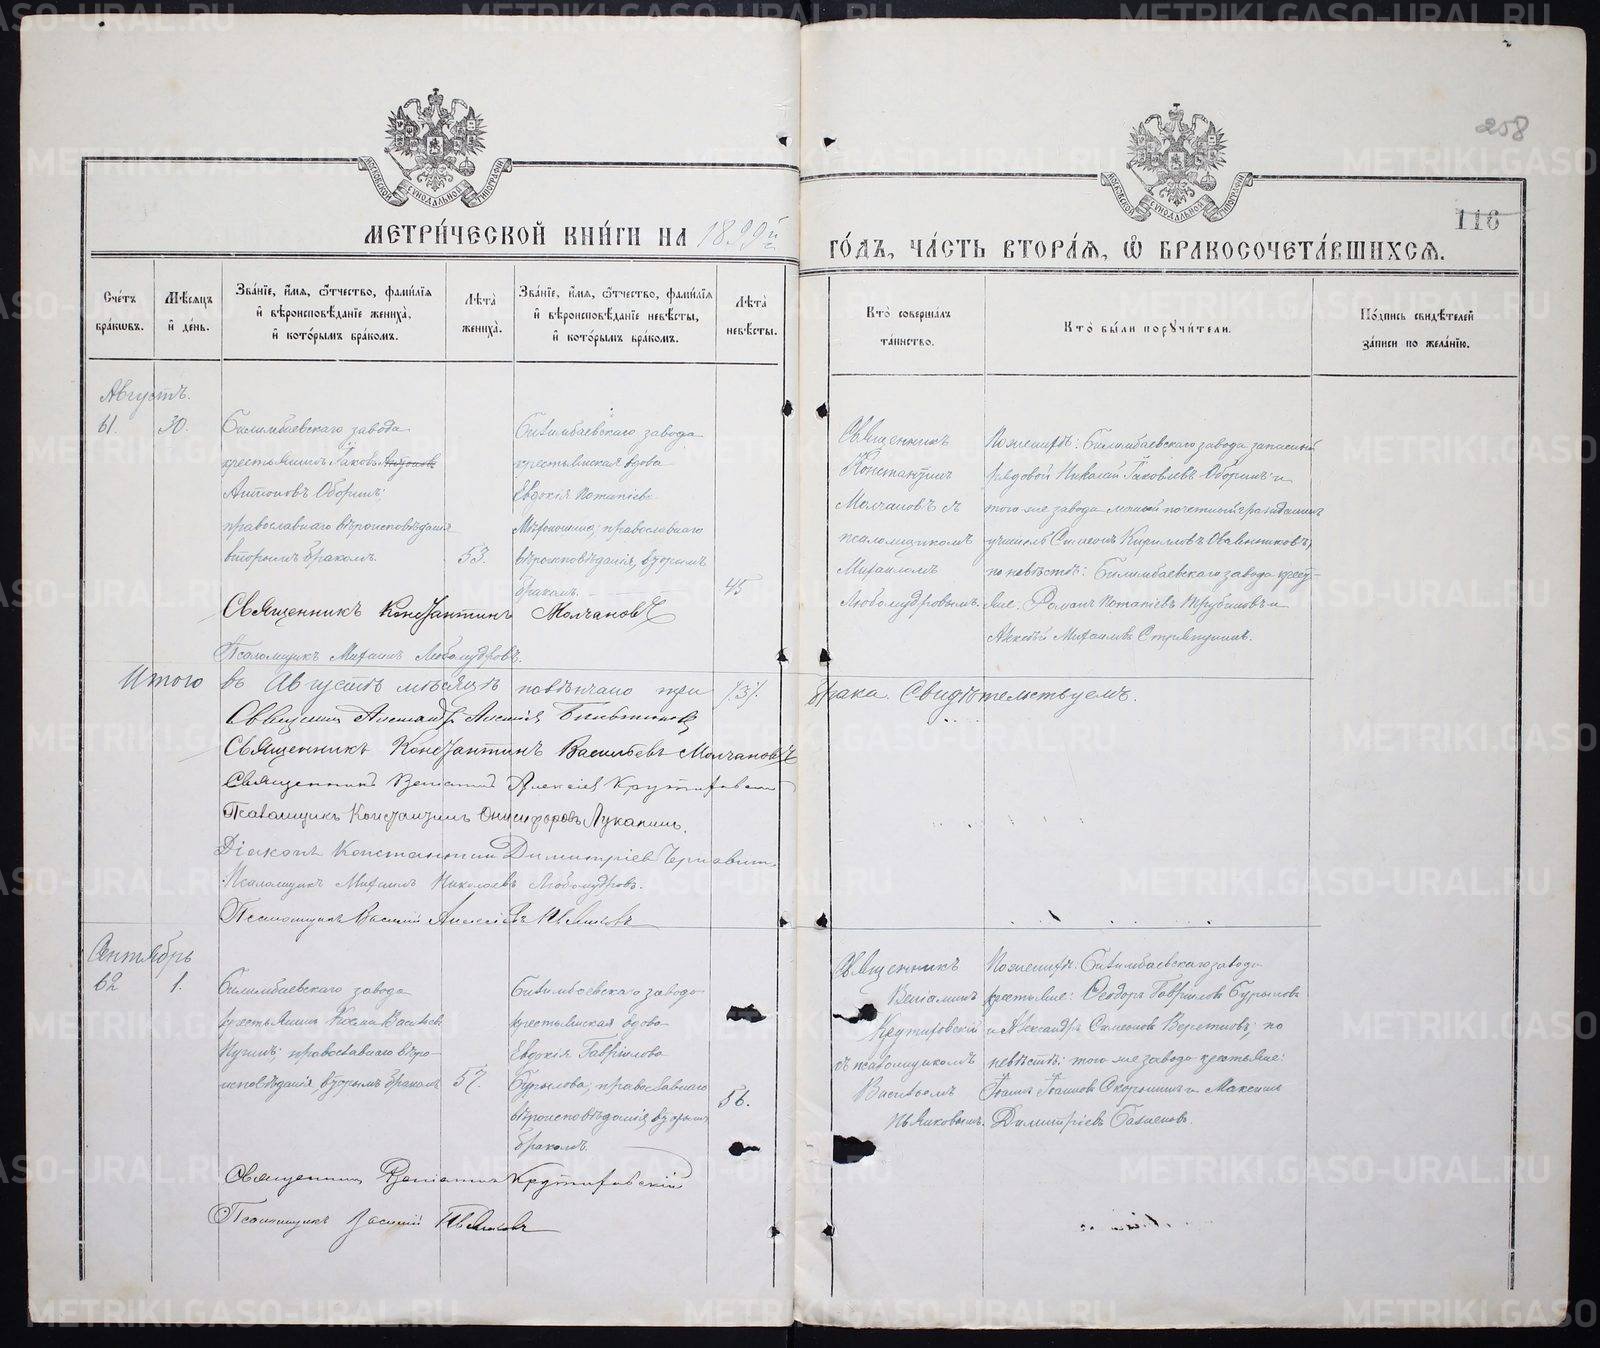 МЕТРИ́ЧЕСКОЙ КНИ́ГИ НА 1899й г.
ГО́ДЪ, ЧА́СТЬ ВТОРА́Я, Ѿ БРАКОСОЧЕТА́ВШИХСЯ.
258
116
Сче́тъ бра́кѡвъ.
Мѣ́сяцъ и҆ де́нь.
Зва́нїе, и҆́мя, ѻ҆́тчество, фамі́лїя и҆ вѣроисповѣ́данїе жениха̀, и҆ кото́рымъ бра́комъ.
Лѣта̀ жениха̀.
Зва́нїе, и҆́мя, ѻ҆́тчество, фамі́лїя и҆ вѣроисповѣ́данїе невѣ́сты, и҆ кото́рымъ бра́комъ.
Лѣта̀ невѣ́сты.
Кто̀ соверша́лъ та́инство.
Кто̀ бы́ли порꙋчи́тели.
По́дпись свидѣ́телей за́писи по жела́нїю.
Августъ.
61.
30.
Билимбаевскаго завода
крестьянинъ Іаковъ
Антоновъ Оборинъ;
православнаго вѣроисповѣданія
вторымъ бракомъ.
53.
Билимбаевскаго завода
крестьянская вдова
Евдокія Потапіева
православнаго
вѣроисповѣданія, вторымъ
бракомъ.
45
Священникъ
Константинъ
Молчановъ съ
псаломщикомъ
Михаиломъ
Любомудровымъ.
По женихѣ: Билимбаевскаго завода запасный
рядовой Николай Іаковлевъ Оборинъ и
того же завода личный почетный гражданинъ
учитель Симеонъ Кирилловъ Овчинниковъ,
по невѣстѣ: Билимбаевскаго завода кресть-
яне: Романъ Потапіевъ Трубиновъ и
Алексѣй Михаиловъ
Священникъ Константинъ Молчановъ
Псаломщикъ Михаилъ Любомудровъ.
Итого въ Августѣ мѣсяцѣ повѣнчано три /3/ брака. Свидѣтельствуемъ.
Священникъ Александръ Алексіевъ
Священникъ Константинъ Васильевъ Молчановъ
Священникъ Веніаминъ Алексіевъ Крутиховскій
Псаломщикъ Константинъ Онисифоровъ Луканинъ.
Діаконъ Константинъ Димитріевъ
Псаломщикъ Михаилъ Николаевъ Любомудровъ.
Псаломщикъ Василій Алексіевъ Ивановъ
Сентябрь
62
1.
Билимбаевскаго завода
крестьянинъ Косма Васильевъ
православнаго вѣро-
исповѣданія, вторымъ бракомъ
57.
Билимбаевскаго завода
крестьянская вдова
Евдокія Гавріилова
Бурылова; православнаго
вѣроисповѣданія, вторымъ
бракомъ.
56.
Священникъ
Веніаминъ
Крутиховскій
съ псаломщикомъ
Василіемъ
По женихѣ: Билимбаевскаго завода
крестьяне: Ѳеодоръ Гавріиловъ Бурыловъ
и Александръ Симеоновъ по
невѣстѣ: того же завода крестьяне:
Іоаннъ Іоанновъ и Максимъ
Димитріевъ
Священникъ Веніаминъ Крутиховскій
Псаломщикъ Василій